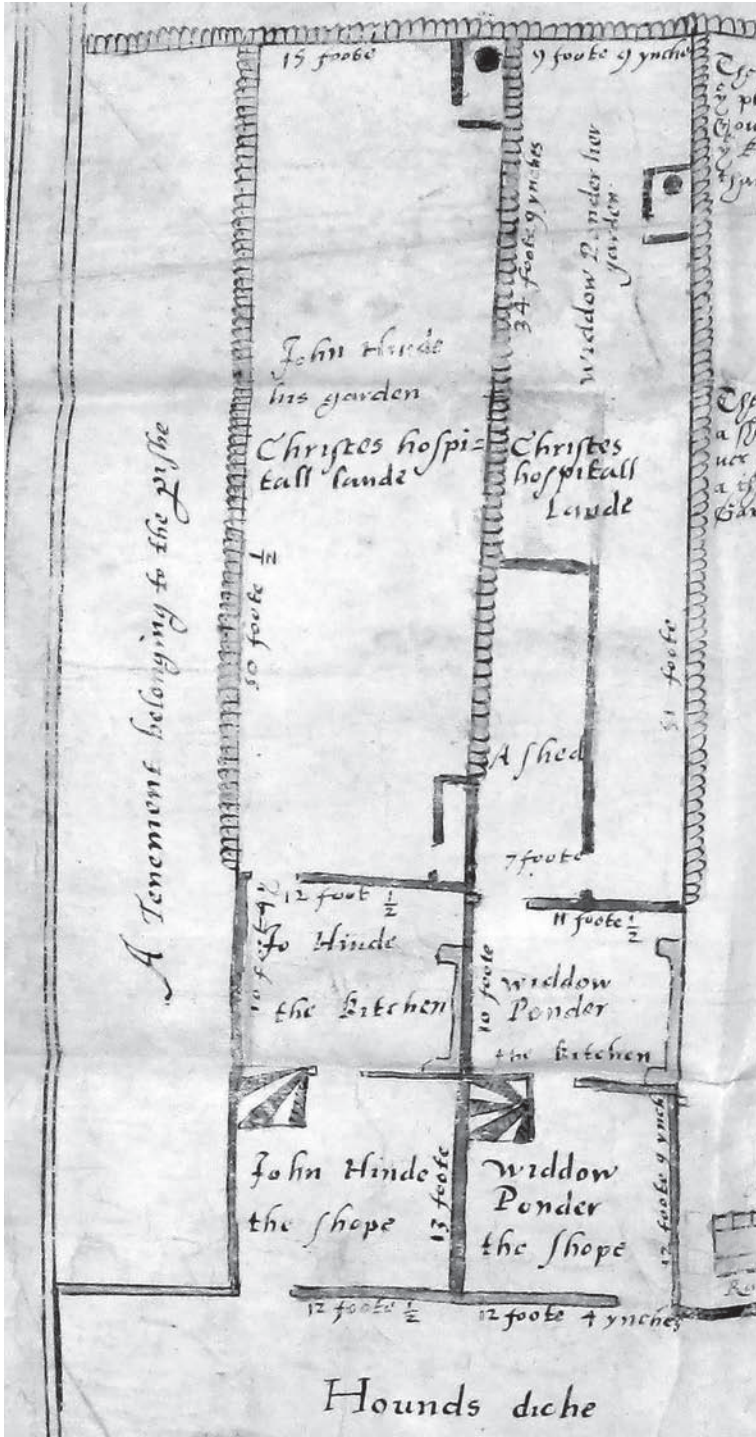 15 foote
9 foote 9 ynches
34 foote 9 ynches
Widdow Ponder her
garden
John Hinde
his garden
Christes hospi=
tall lande
Christes
hospitall
Lande
A Tenement belonging to the pishe
50 foote 1/2
51 foote
A shed
7 foote
12 foot 1/2
11 foote 1/2
10 foote
Jo Hinde
the kitchen
10 foote
widdow
Ponder
the kitchen
John Hinde
the shope
13 foote
widdow
Ponder
the shope
12 foote 9 ynch
12 foote 1/2
12 foote 4 ynches
Hounds diche